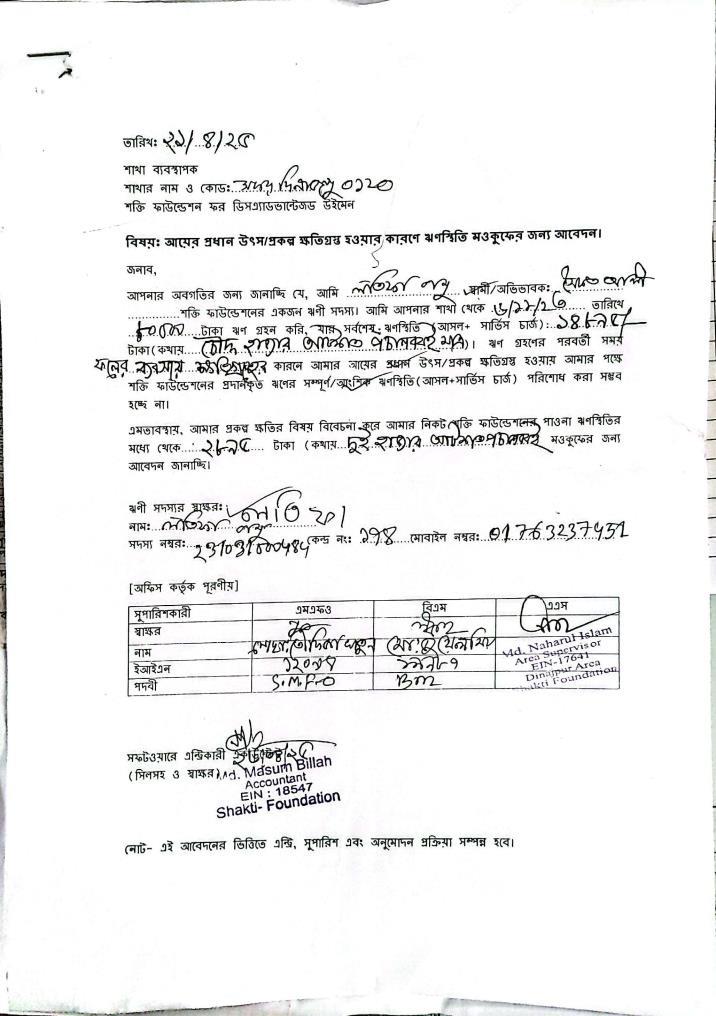 তারিখ: ২৯/৪/২৫
শাখা ব্যবস্থাপক
শাখার নাম ও কোড: সদর দিনাজপুর ০১২০
শক্তি ফাউন্ডেশন ফর ডিসএ্যাডভান্টেজড উইমেন
বিষয়: আয়ের প্রধান উৎস/প্রকল্প ক্ষতিগ্রস্ত হওয়ার কারণে ঋণস্থিতি মওকুফের জন্য আবেদন।
জনাব,
আপনার অবগতির জন্য জানাচ্ছি যে, আমি লতিফা স্বামী/অভিভাবক: সৈয়দ আলী
শক্তি ফাউন্ডেশনের একজন ঋণী সদস্য। আমি আপনার শাখা থেকে ৬/১১/২৩ তারিখে
টাকা ঋণ গ্রহন করি, যার সর্বশেষ ঋণস্থিতি (আসল+ সার্ভিস চার্জ): ১৪৮৯৫
টাকা (কথায় চৌদ্দ হাজার আটশত পচানব্বই)। ঋণ গ্রহণের পরবর্তী সময়
ফলের ব্যবসায় কারনে আমার আয়ের প্রধান উৎস/প্রকল্প ক্ষতিগ্রস্ত হওয়ায় আমার পক্ষে
শক্তি ফাউন্ডেশনের প্রদানকৃত ঋণের সম্পূর্ণ/আংশিক ঋণস্থিতি(আসল+সার্ভিস চার্জ) পরিশোধ করা সম্ভব
হচ্ছে না।
এমতাবস্থায়, আমার প্রকল্প ক্ষতির বিষয় বিবেচনা করে আমার নিকট শক্তি ফাউন্ডেশনের পাওনা ঋণস্থিতির
মধ্যে থেকে: ২৮৯৫ টাকা (কথায় দুই হাজার আটশত পচানব্বই মওকুফের জন্য
আবেদন জানাচ্ছি।
ঋণী সদস্যর স্বাক্ষর: লতিফা
নাম: লতিফা
সদস্য নম্বর: কেন্দ্র নং: ১৭৪ মোবাইল নম্বর: 01763237451
[অফিস কর্তৃক পূরণীয়]
সুপারিশকারী এমএফও বিএম এএস
স্বাক্ষর
নাম Md. Naharul Islam
Area Supervisor
ইআইএন EIN-17641
Dinajpur Area
পদবী S.M.F.O BM Shakti Foundation
সফটওয়ারে এন্ট্রিকারী একাউন্টেন্ট
(সিলসহ ও স্বাক্ষর) Md. Masum Billah
Accountant
EIN : 18547
Shakti- Foundation
নোট- এই আবেদনের ভিত্তিতে এন্ট্রি, সুপারিশ এবং অনুমোদন প্রক্রিয়া সম্পন্ন হবে।